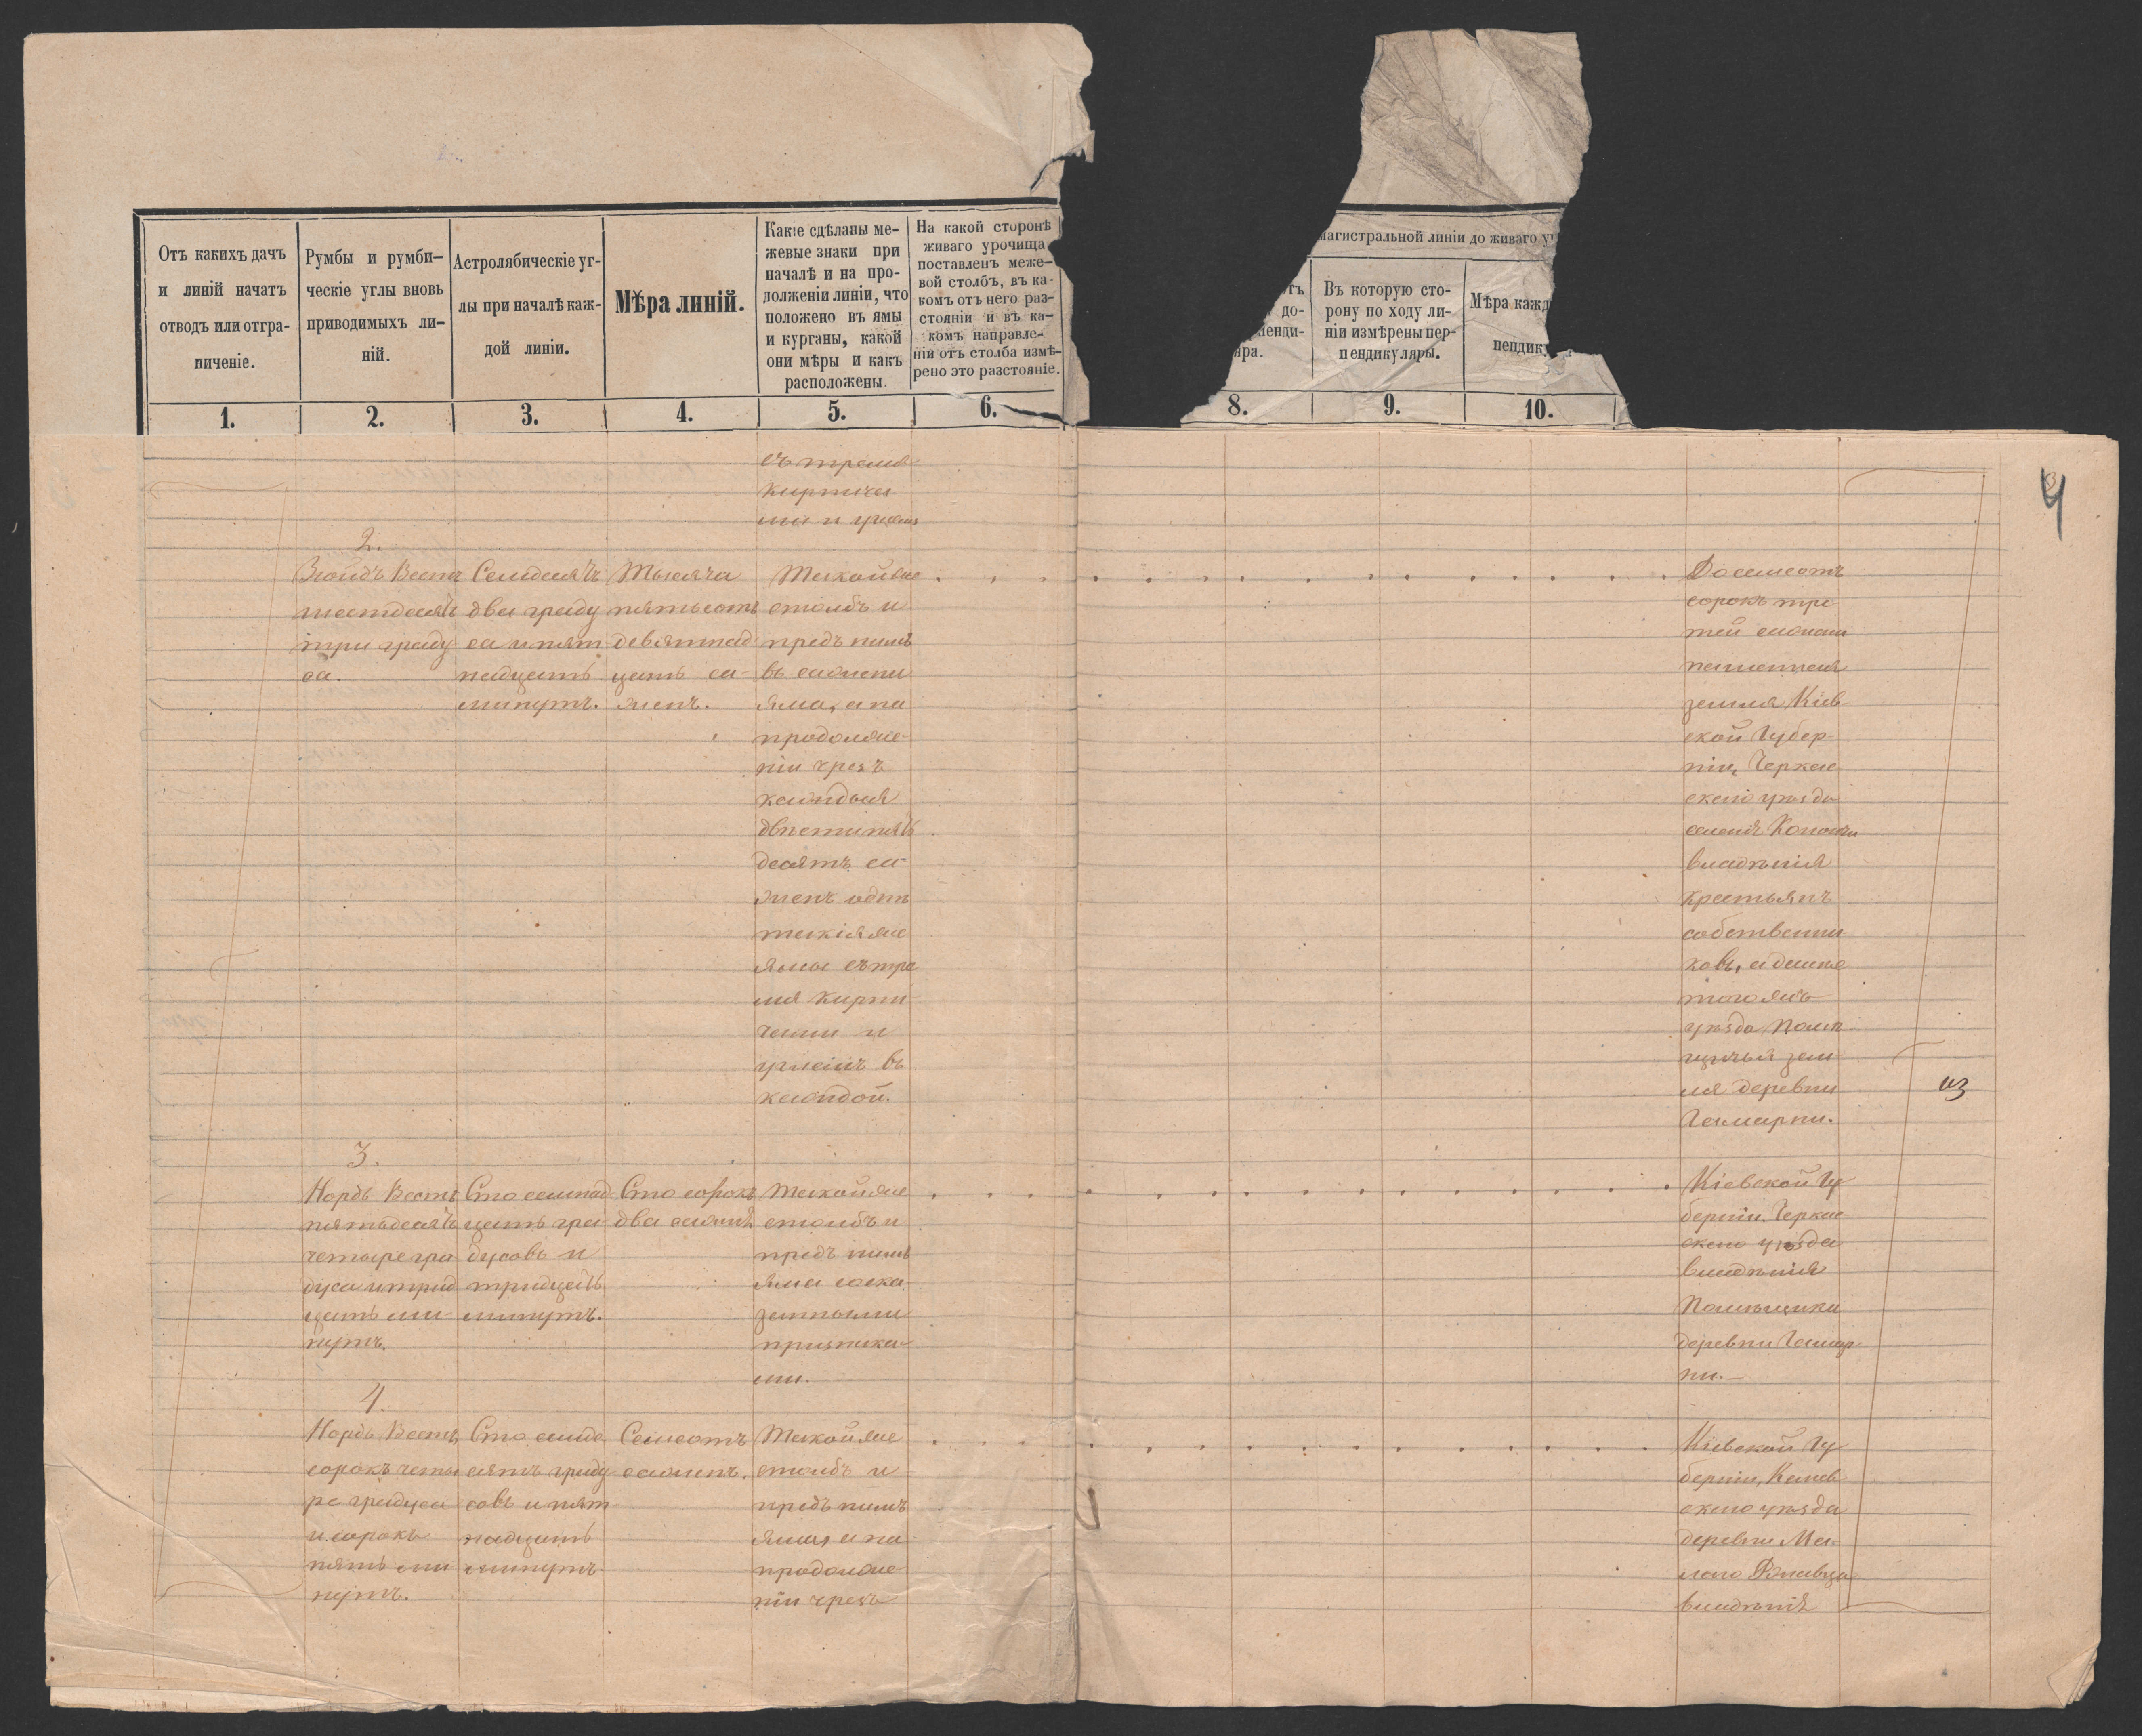 Отъ какихъ дачъ
и линій начатъ
отводъ или отгра-
ниченіе.
Румбы и румби-
ческіе углы вновь
приводимыхъ ли-
ній.
Астролябическіе уг-
лы при началѣ каж-
дой линіи.
Мѣра линій.
Какіе сдѣланы ме-
жевые знаки при
началѣ и на про-
долженіи линіи, что
положено въ ямы
и курганы, какой
они мѣры и какъ
расположены.
На какой сторонѣ
живаго урочища
поставленъ меже-
вой столбъ, въ ка-
комъ отъ него раз-
стояніи и въ ка-
комъ направле-
ніи отъ столба измѣ-
рено это разстояніе.
магистральной линіи до живаго у
тъ
до-
пенди-
яра.
Въ которую сто-
рону по ходу ли-
ніи измѣрены пер-
пендикуляры.
Мѣра кажд
пендик
1.
2.
3.
4.
5.
6.
8.
9.
10.
съ тремя
кирпича
ми и углемъ
4
2.
Зюйдъ Вестъ
шестдесятъ
три граду
са.
Семдесятъ
два граду
са и пят
надцать
минутъ.
Тысяча
пятьсотъ
девятнад
цать са-
женъ.
Такой же
столбъ и
предъ нимъ
въ сажени
яма, а на
продолже-
ніи чрезъ
каждыя
двѣсти пятъ
десятъ са-
женъ однѣ
такія же
ямы съ тре
мя кирпи-
чами и
углемъ въ
каждой.
Восемсотъ
сорокъ тре-
тей сажени
земля Кіев
ской Губер-
ніи, Черкас
скаго уѣзда
владѣнія
крестьянъ
собственни
ковъ, а далѣе
того жъ
уѣзда помѣ
щичья зем
ля деревни
Гамарни.
из
3.
Нордъ Вестъ
пятьдесятъ
четыре гра
дуса и трид
цать ми-
нутъ.
Сто семнад
цать гра-
дусовъ и
тридцать
минутъ.
Сто сорокъ
два сажня
Такой же
столбъ и
предъ нимъ
яма со ска
занными
признака-
ми.
Кіевской Гу
берніи, Черкас
скаго уѣзда
владѣнія
Помѣщика
деревни Гамар
ни.—
4.
Нордъ Вестъ
сорокъ четы
ре градуса
и сорокъ
пять ми
нутъ.
Сто семде
сятъ граду
совъ и пят
надцать
минутъ.
Семсотъ
саженъ.
Такой же
столбъ и
предъ нимъ
яма, а на
продолже-
ніи чрезъ
Кіевской Гу
берніи, Канев
скаго уѣзда
деревни Ма-
лаго Ржавца
владѣнія